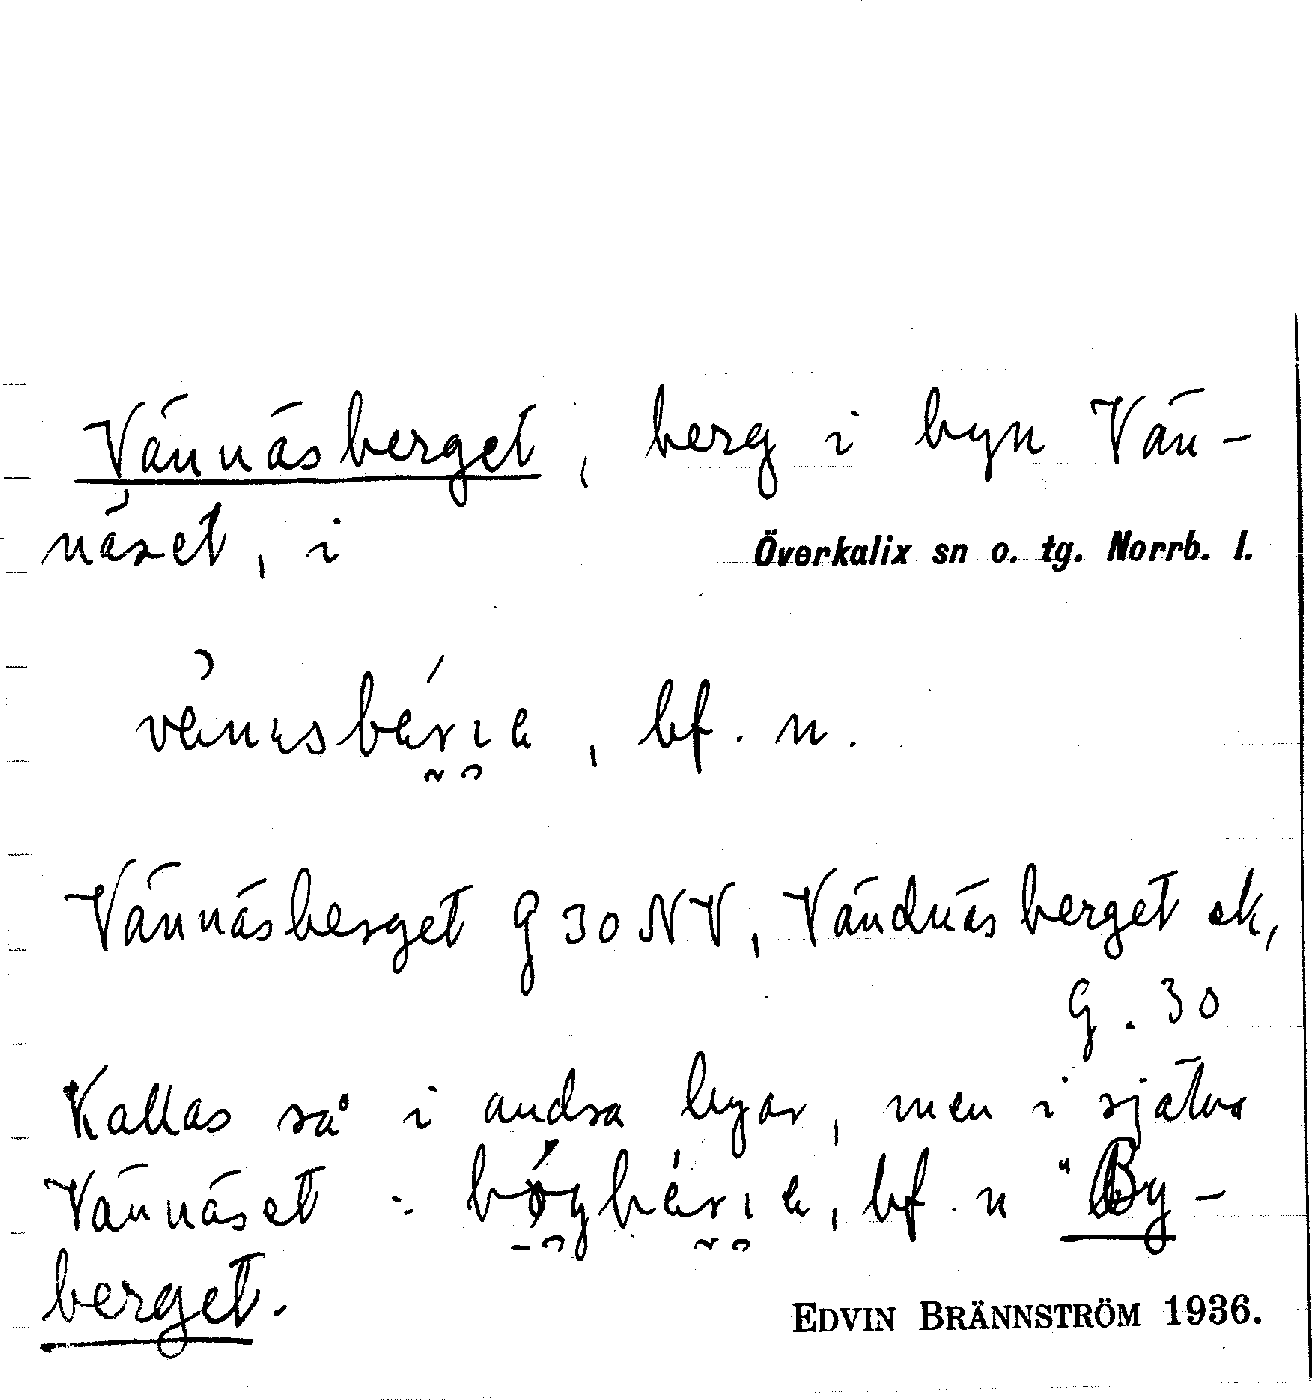 Vännäsberget, berg i byn Vän-
näset, i Överkalix sn o. tg. Norrb. l.
, bf. n.
Vännäsberget G 30 NV, Vändnäsberget ek,
G. 30
Kallas så i andra byar, men i själva
Vännäset : , bf. n "By-
berget.
EDVIN BRÄNNSTRÖM 1936.